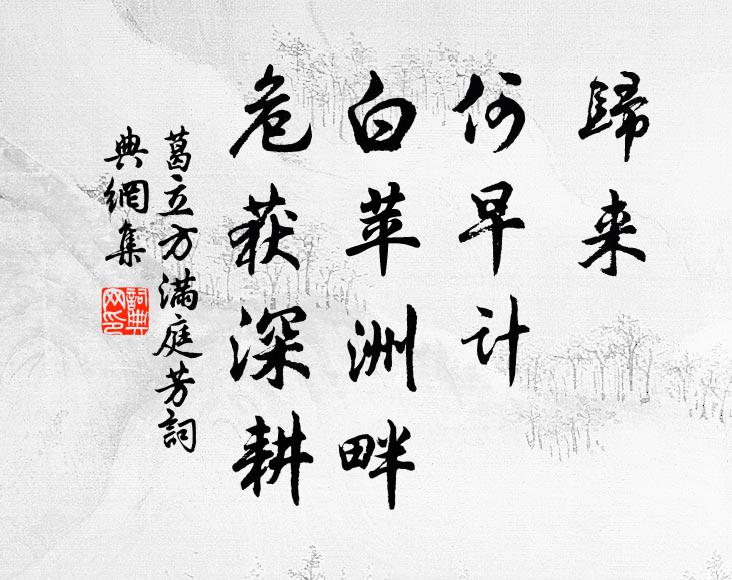 歸来
何早计
白苹洲畔
危获深耕
葛立方满庭芳詞
典網集
詞典网印